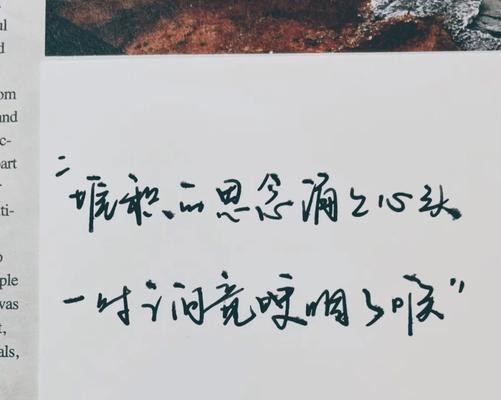 om
and
c-
part
ti-
ple
was
t,
als,
“堆积的思念涌上心头
一时之间竟哽咽了喉”